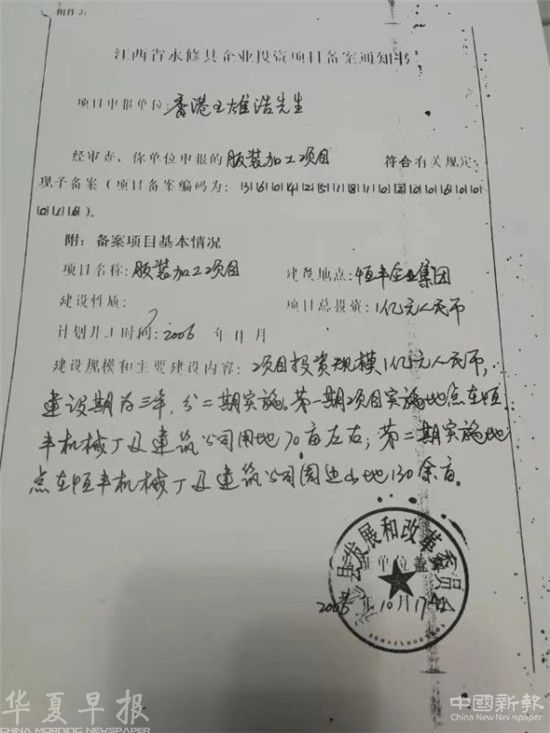 附件2:
江西省永修县企业投资项目备案通知书
项目申报单位:香港王雄浩先生
经审查,你单位申报的服装加工项目 符合有关规定,
现予备案(项目备案编码为:
附:备案项目基本情况
项目名称:服装加工项目 建设地点:恒丰企业集团
建设性质: 项目总投资:1亿元人民币
计划开工时间:2006年11月
建设规模和主要建设内容:项目投资规模1亿元人民币,
建设期为三年,分二期实施。第一期项目实施地点在恒
丰机械厂及建筑公司用地70亩左右;第二期实施地
点在恒丰机械厂及建筑公司周边山地130余亩。
县发展和改革委员会
单位盖
10月17
华夏早报
CHINA MORNING NEWSPAPER
中國新報
China New Newspaper